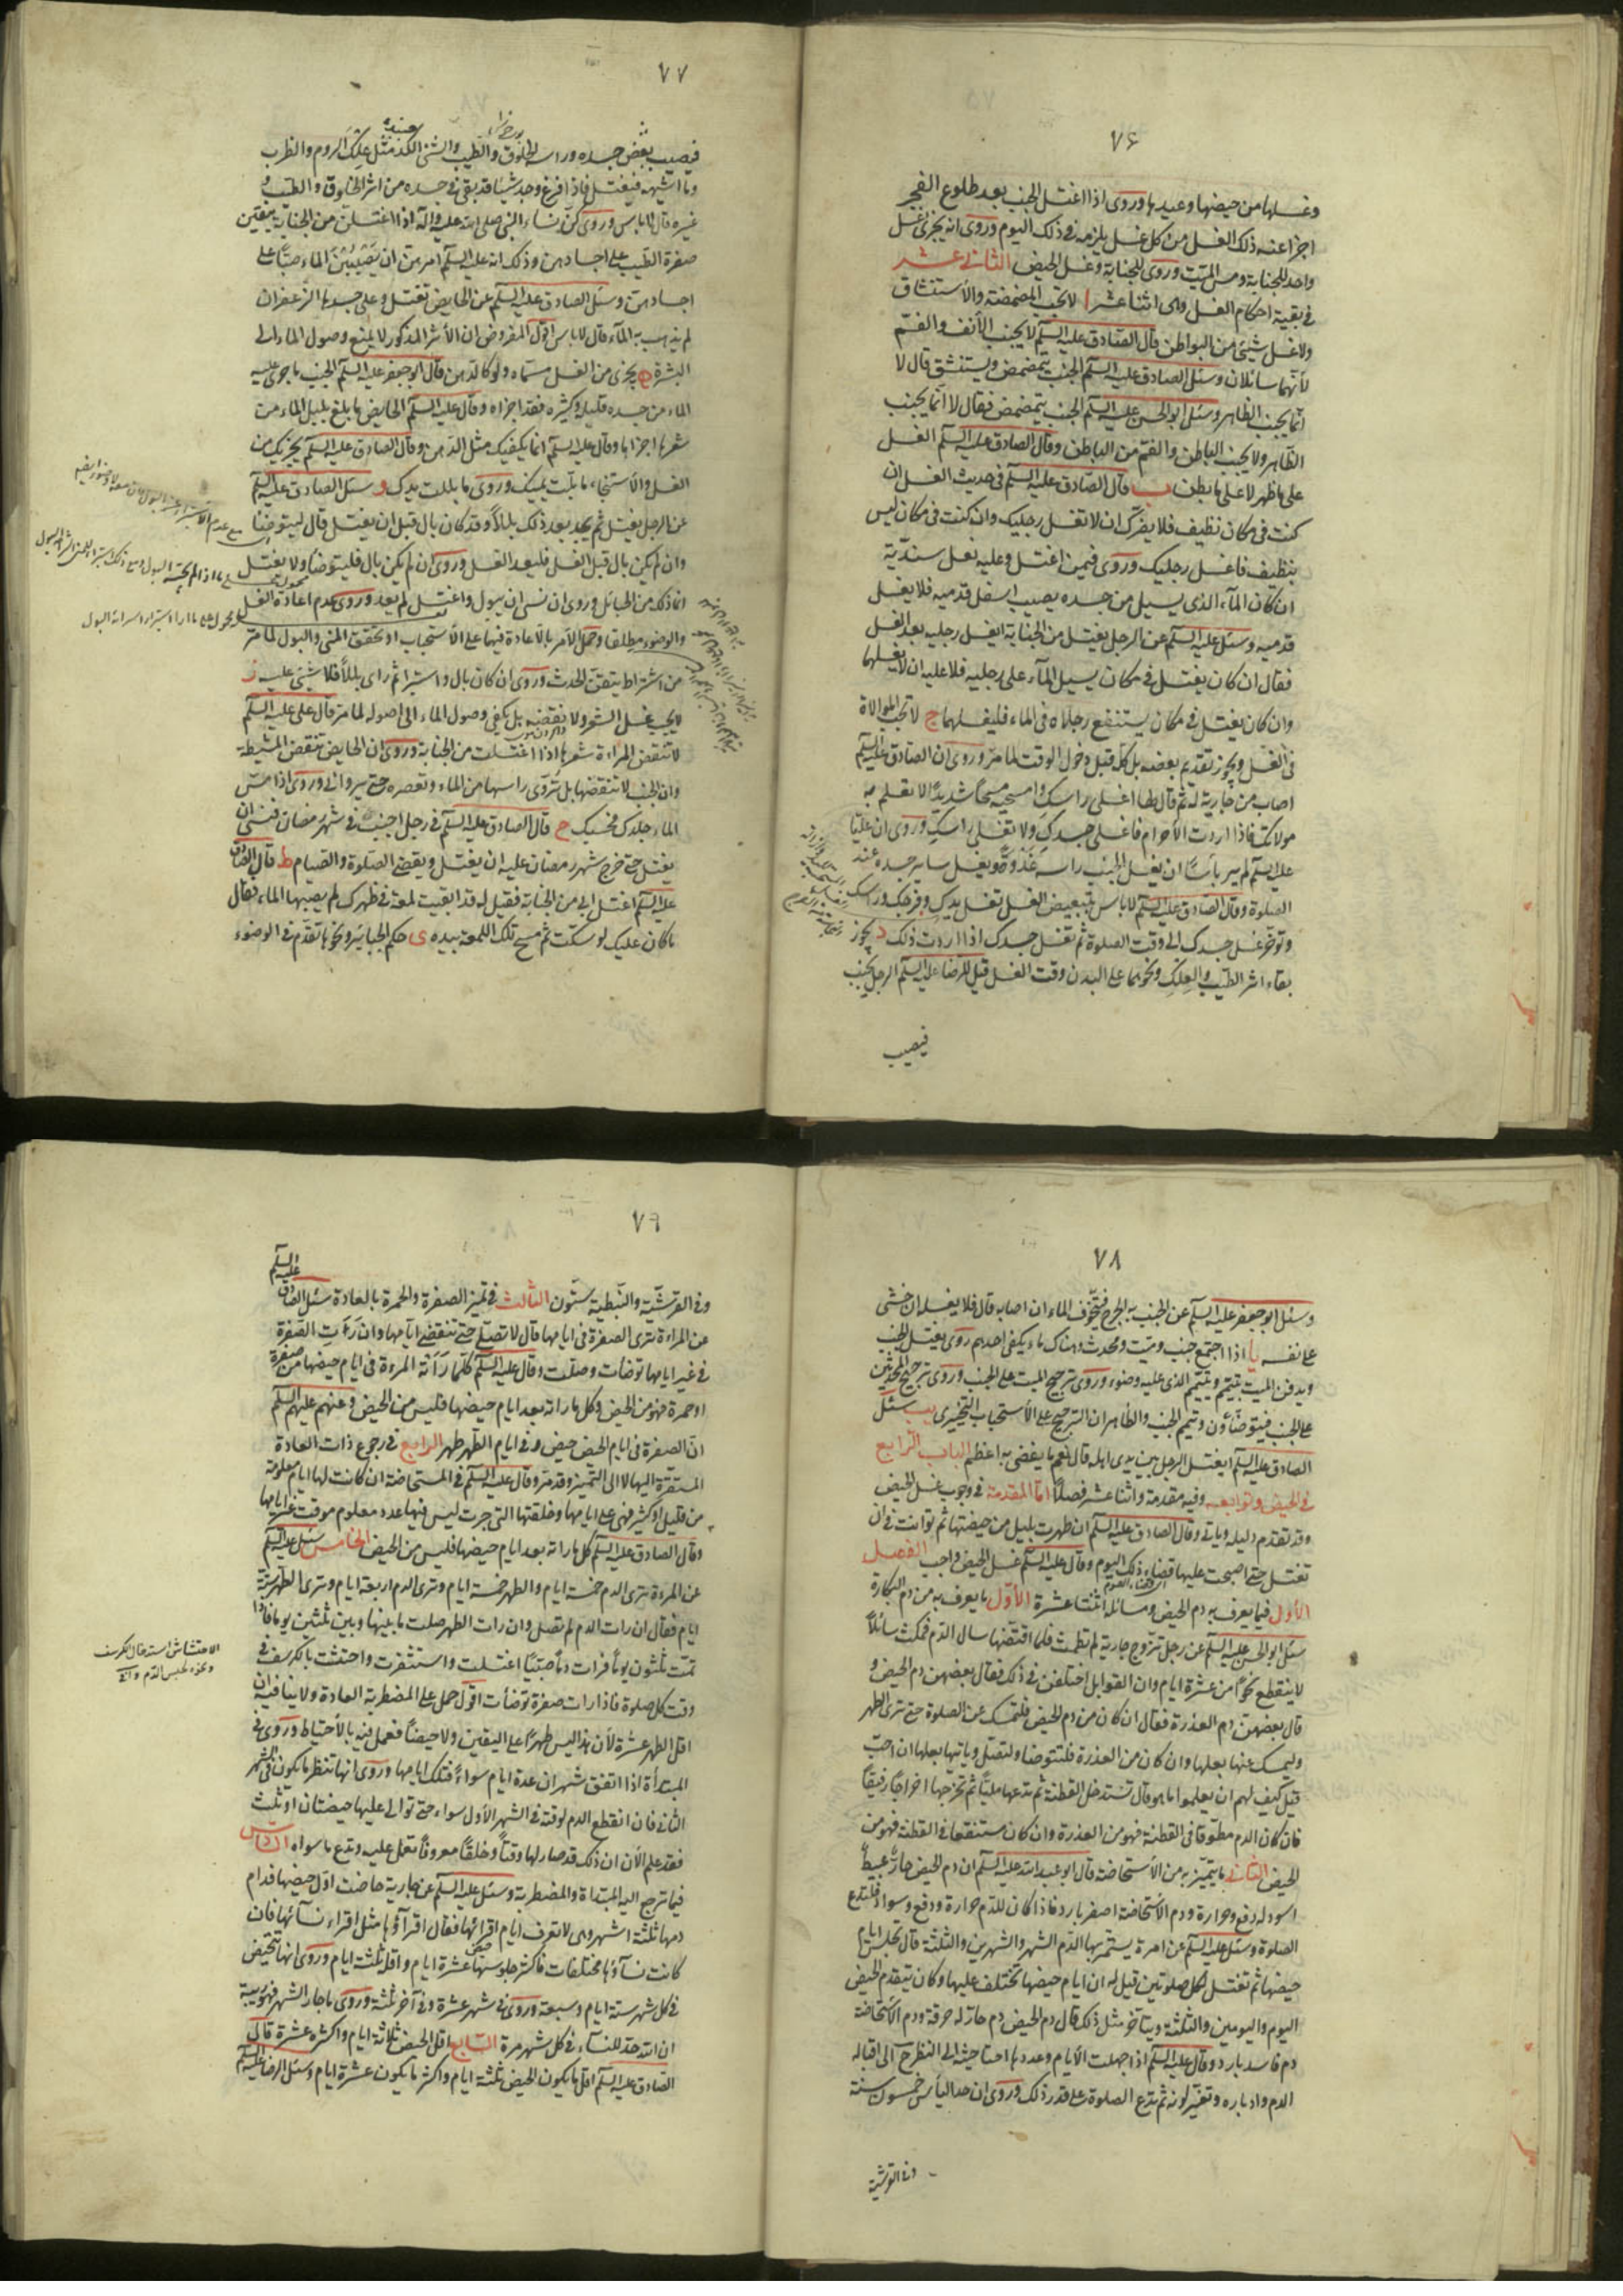 ٧۶
وغسلها من حيضها وعيدها وروى اذا اغتسل الجنب بعد طلوع الفجر
اجزا عنه ذلك الغسل من كل غسل يلزمه فى ذلك اليوم وروى انه يجزى غسل
واحد للجنابة ومس الميت وروى للجنابة وغسل الحيض الثانى عشر
فى بقية احكام الغسل وهى اثنا عشر ا لا تجب المضمضة والاستنشاق
ولا غسل شيئ من البواطن قال الصادق عليه السلم لا يجنب الأنف والفم
لأنهما سائلان وسئل الصادق عليه السلم الجنب يتمضمض ويستنشق قال لا
انما يجنب الظاهر وسئل ابو الحسن عليه السلم الجنب يتمضمض فقال لا انما يجنب
الظاهر ولا يجنب الباطن والفم من الباطن وقال الصادق عليه السلم الغسل
على ما ظهر لا على ما بطن ب قال الصادق عليه السلم فى حديث الغسل ان
كنت فى مكان نظيف فلا يضرك ان لا تغسل رجليك وان كنت فى مكان ليس
بنظيف فاغسل رجليك وروى فيمن اغتسل وعليه نعل سندية
ان كان الماء الذى يسيل من جسده يصيب اسفل قدميه فلا يغسل
قدميه وسئل عليه السلم عن الرجل يغتسل من الجنابة ايغسل رجليه بعد الغسل
فقال ان كان يغتسل فى مكان يسيل الماء على رجليه فلا عليه ان لا يغسلهما
وان كان يغتسل فى مكان يستنقع رجلاه فى الماء فليغسلهما ج لا تجب الموالاة
فى الغسل ويجوز تقديم بعضه بل كله قبل دخول الوقت لما مر وروى ان الصادق عليه السلم
اصاب من جارية له ثم قال لها اغسلى راسك وامسحيه مسحا شديدا لا تعلم به
مولاتك فاذا اردت الأحرام فاغسلى جسدك ولا تغسلى راسك وروى ان عليا
عليه السلم لم ير باسا ان يغسل الجنب راسه غدوة ويغسل ساير جسده عند
الصلوة وقال الصادق عليه السلم لا باس بتبعيض الغسل تغسل يدك وفرجك وراسك
وتوخر غسل جسدك الى وقت الصلوة ثم تغسل جسدك اذا اردت ذلك د يجوز
بقاء اثر الطيب والعلك ونحوهما على البدن وقت الغسل قيل للرضا عليه السلم الرجل يجنب
فيصيب
٧٧
فيصيب بعض جسده وراسه الخلوق والطيب والشئ اللكد مثل علك الروم والظرب
وما اشبهه فيغتسل فاذا فرغ وجد شيئا قد بقى فى جسده من اثر الخلوق والطيب و
غيره قال لا باس وروى كن نساء النبى صلى الله عليه واله اذا اغتسلن من الجنابة يبقين
صفرة الطيب على اجسادهن وذلك انه عليه السلم امرهن ان يصببن الماء صبا على
اجسادهن وسئل الصادق عليه السلم عن الحايض تغتسل وعلى جسدها الزعفران
لم يذهب به الماء قال لا باس اقول المفروض ان الأثر المذكور لا يمنع وصول الماء الى
البشرة ه يجزى من الغسل مسماه ولو كالدهن قال ابو جعفر عليه السلم الجنب ما جرى عليه
الماء من جسده قليله وكثيره فقد اجزاه وقال عليه السلم الحايض ما بلغ بلل الماء من
شعرها اجزاها وقال عليه السلم انما يكفيك مثل الدهن وقال الصادق عليه السلم يجزيك من
الغسل والاستنجاء ما بلت يمينك وروى ما بللت يدك و سئل الصادق عليه السلم
عن الرجل يغتسل ثم يجد بعد ذلك بللا وقد كان بال قبل ان يغتسل قال ليتوضا
وان لم يكن بال قبل الغسل فليعد الغسل وروى ان لم يكن بال فليتوضا ولا يغتسل
انما ذلك من الحبائل وروى ان نسى ان يبول واغتسل لم يعد وروى عدم اعادة الغسل
والوضوء مطلقا وحمل الأمر بالاعادة فيهما على الاستحباب او تحقق المنى والبول لما مر
من اشتراط يتقن الحدث وروى ان كان بال واستبرا ثم راى بللا فلا شيئ عليه ز
لا يجب غسل الشعر ولا نقضه بل يكفى وصول الماء الى اصوله لما مر قال على عليه السلم
لا تنقض المراة شعرها اذا اغتسلت من الجنابة وروى ان الحايض تنقض المشيطة
وان الجنب لا تنقضها بل تروى راسها من الماء وتعصره حتى يروى وروى اذا مس
الماء جلدك فحسبك ح قال الصادق عليه السلم فى رجل اجنب فى شهر رمضان فنسى ان
يغتسل حتى خرج شهر رمضان عليه ان يغتسل ويقضى الصلوة والصيام ط قال الصادق
عليه السلم اغتسل ابى من الجنابة فقيل له قد ابقيت لمعة فى ظهرك لم يصبها الماء فقال
ما كان عليك لو سكتت ثم مسح تلك اللمعة بيده ى حكم الجباير ونحوها تقدم فى الوضوء
٧٨
وسئل ابو جعفر عليه السلم عن الجنب به الجرح فيتخوف الماء ان اصابه قال فلا يغسله ان خشى
على نفسه يا اذا اجتمع جنب وميت ومحدث وهناك ماء يكفى احدهم روى يغتسل الجنب
ويدفن الميت بتيمم ويتيمم الذى عليه وضوء وروى ترجيح الميت على الجنب وروى ترجيح المحدثين
على الجنب فيتوضاؤن ويتيمم الجنب والظاهر ان الترجيح على الأستحباب التخييرى يب سئل
الصادق عليه السلم ايغتسل الرجل بين يدى اهله قال نعم ما يفضى به اعظم الباب الرابع
فى الحيض وتوابعه وفيه مقدمة واثنا عشر فصلا اما المقدمة فى وجوب غسل الحيض
وقد تقدم دليله وياتى وقال الصادق عليه السلم ان طهرت بليل من حيضتها ثم توانت فى ان
تغتسل حتى اصبحت عليها قضاء ذلك اليوم وقال عليه السلم غسل الحيض واجب الفصل
الأول فيما يعرف به دم الحيض ومسائله اثنتا عشرة الأول ما يعرف به من دم البكارة
سئل ابو الحسن عليه السلم عن رجل تزوج جارية لم تطمث فلما اقتضها سال الدم فمكث سائلا
لا ينقطع نحوا من عشرة ايام وان القوابل اختلفن فى ذلك فقال بعضهن دم الحيض و
قال بعضهن دم العذرة فقال ان كان من دم الحيض فلتمسك عن الصلوة حتى ترى الطهر
وليمسك عنها بعلها وان كان من العذرة فلتتوضا ولتصل وياتيها بعلها ان احب
قيل كيف لهم ان يعلموا ما هو قال تستدخل القطنة ثم تدعها مليا ثم تخرجها اخراجا رفيقا
فان كان الدم مطوقا فى القطنة فهو من العذرة وان كان مستنقعا فى القطنة فهو من
الحيض الثانى ما يتميز به من الأستحاضة قال ابو عبد الله عليه السلم ان دم الحيض حار عبيط
اسود له دفع وحرارة ودم الأستحاضة اصفر بارد فاذا كان للدم حرارة ودفع وسواد فلتدع
الصلوة وسئل عليه السلم عن امرة يستمر بها الدم الشهر والشهرين والثلثة قال تجلس ايام
حيضها ثم تغتسل لكل صلوتين قيل له ان ايام حيضها تختلف عليها وكان يتقدم الحيض
اليوم واليومين والثلثة ويتاخر مثل ذلك قال دم الحيض دم حار له حرقة ودم الاستحاضة
دم فاسد بارد وقال عليه السلم اذا جهلت الأيام وعددها احتاجت الى النظر ح الى اقبال
الدم وادباره وتغير لونه ثم تدع الصلوة على قدر ذلك وروى ان حد الياس خمسون سنة
وفى القرشية
٧٩
وفى القرشية والنبطية ستون الثالث فى تميز الصفرة والحمرة بالعادة سئل الصادق عليه السلم
عن المراءة ترى الصفرة فى ايامها قال لا تصلى حتى تنقضى ايامها وان رءت الصفرة
فى غير ايامها توضات وصلت وقال عليه السلم كلما راته المرءة فى ايام حيضها من صفرة
او حمرة فهو من الحيض وكل ما راته بعد ايام حيضها فليس من الحيض وعنهم عليهم السلم
ان الصفرة فى ايام الحيض حيض وفى ايام الطهر طهر الرابع فى رجوع ذات العادة
المستقرة اليها لا الى التميز وقد مر وقال عليه السلم فى المستحاضة ان كانت لها ايام معلومة
من قليل او كثير فهى على ايامها وخلقتها التى جرت ليس فيها عدد معلوم موقت غير ايامها
وقال الصادق عليه السلم كل ما راته بعد ايام حيضها فليس من الحيض الخامس سئل عليه السلم
عن المرءة ترى الدم خمسة ايام والطهر خمسة ايام وترى الدم اربعة ايام وترى الطهر ستة
ايام فقال ان رات الدم لم تصل وان رات الطهر صلت ما بينها وبين ثلثين يوما فاذا
تمت ثلثون يوما فرات دما صبيبا اغتسلت واستثفرت واحتشت بالكرسف فى
وقت كل صلوة فاذا رات صفرة توضات اقول حمل على المضطربة العادة ولا ينافيه ان
اقل الطهر عشرة لأن هذا ليس طهرا على اليقين ولا حيضا فعمل فيه بالأحتياط وروى فى
المبتدأة اذا اتفق شهران عدة ايام سواء فتلك ايامها وروى انها تنظر ما يكون فى الشهر
الثانى فان انقطع الدم لوقته فى الشهر الأول سواء حتى توالى عليها حيضتان او ثلث
فقد علم الأن ان ذلك قد صار لها وقتا وخلقا معروفا تعمل عليه وتدع ما سواه السادس
فيما ترجع اليه المبتداة والمضطربة وسئل عليه السلم عن جارية حاضت اول حيضها فدام
دمها ثلثة اشهر وهى لا تعرف ايام اقرائها فقال اقراؤها مثل اقراء نسائها فان
كانت نساؤها مختلفات فاكثر جلوسها عشرة ايام واقله ثلثة ايام وروى انها تتحيض
فى كل شهر ستة ايام وسبعة وروى فى شهر عشرة وفى آخر ثلثة وروى ما جاز الشهر فهو ريبة
ان الله حد للنساء فى كل شهر مرة السابع اقل الحيض ثلاثة ايام واكثره عشرة قال
الصادق عليه السلم اقل ما يكون الحيض ثلثة ايام واكثر ما يكون عشرة ايام وسئل الرضا عليه السلم
الاحتشاش استدخال الكرسف
وغيره لحبس الدم